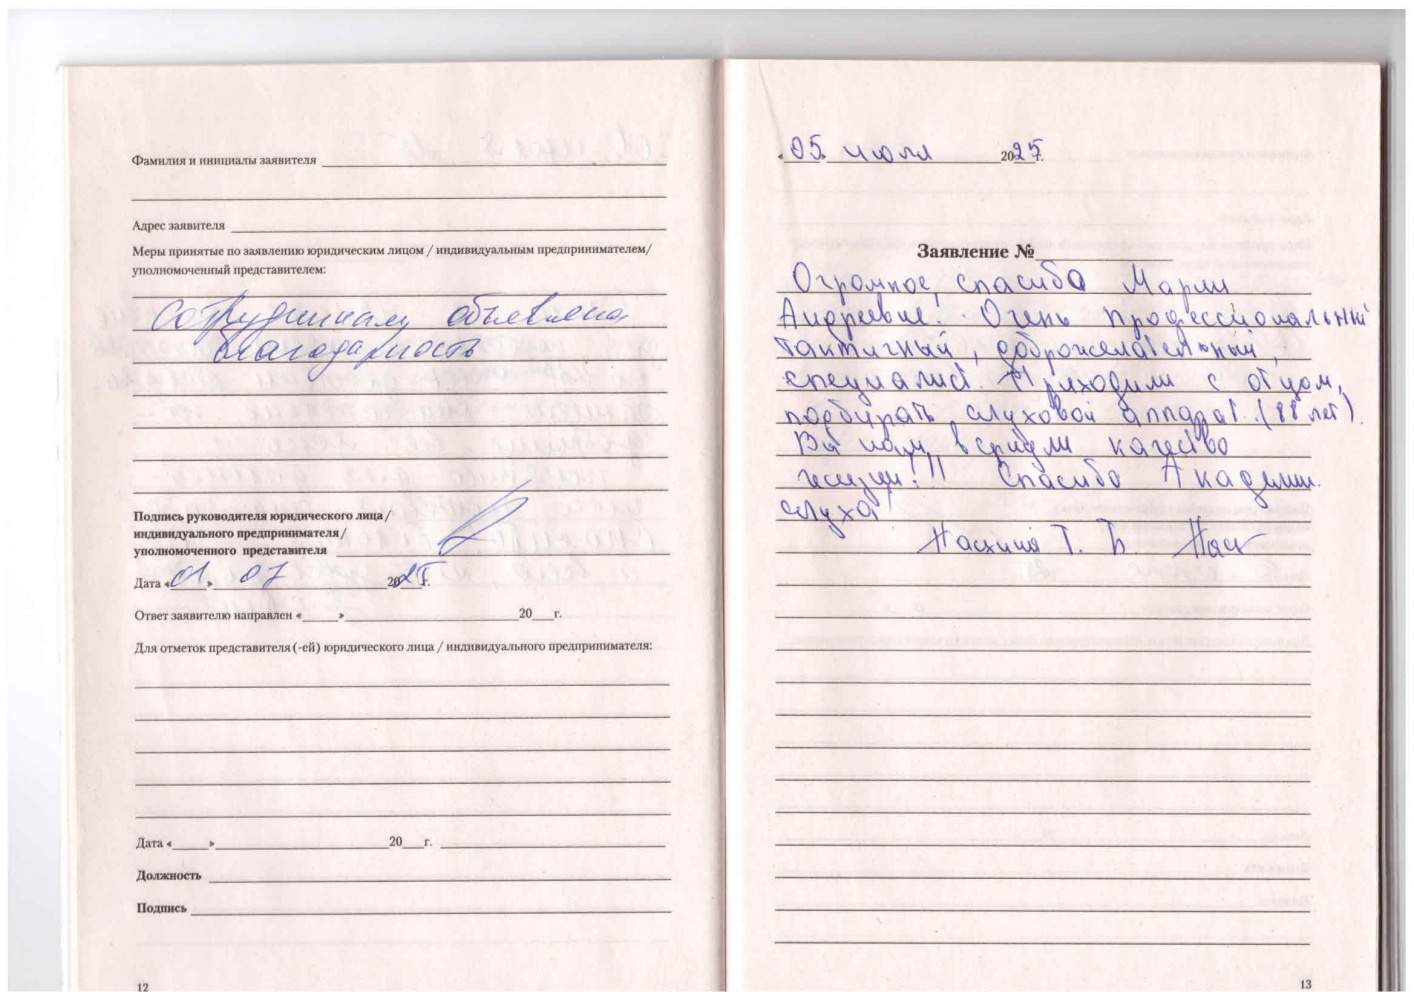 Фамилия и инициалы заявителя
Адрес заявителя
Меры принятые по заявлению юридическим лицом / индивидуальным предпринимателем/
уполномоченный представителем:
Сотрудникам объявлена
благодарность
Подпись руководителя юридического лица/
индивидуального предпринимателя/
уполномоченного представителя
Дата «01» 07 2025г.
Ответ заявителю направлен «___» ___ 20__г.
Для отметок представителя (-ей) юридического лица / индивидуального предпринимателя:
Дата «___» ___ 20__г.
Должность
Подпись
12
«05» июля 2025г.
Заявление №
Огромное, спасибо Марии
Андреевне. Очень профессиональный
тактичный, доброжелательный,
специалист. Приходили с отцом,
подбирать слуховой аппарат. (88 лет).
Вы нам вернули качество
жизни!!! Спасибо Академии
слуха
Т. В.
13